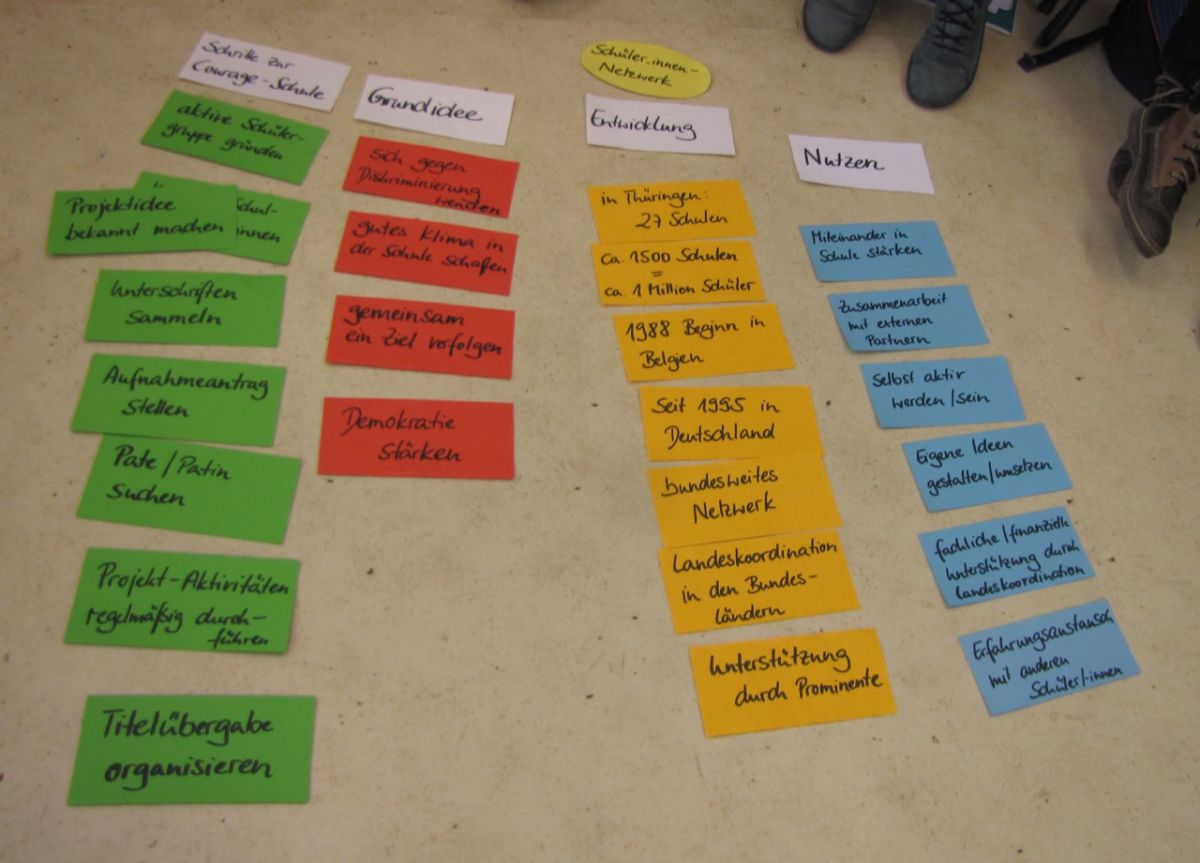 Schritte zur
Courage-Schule
aktive Schüler-
gruppe gründen
Projektidee
bekannt machen
Schul-
innen
Unterschriften
sammeln
Aufnahmeantrag
stellen
Pate/Patin
suchen
Projekt-Aktivitäten
regelmäßig durch-
führen
Titelübergabe
organisieren
Grundidee
sich gegen
Diskriminierung
wenden
gutes Klima in
der Schule schaffen
gemeinsam
ein Ziel verfolgen
Demokratie
stärken
Schüler_innen-
Netzwerk
Entwicklung
in Thüringen:
27 Schulen
ca. 1500 Schulen
=
ca. 1 Million Schüler
1988 Beginn in
Belgien
Seit 1995 in
Deutschland
bundesweites
Netzwerk
Landeskoordination
in den Bundes-
ländern
Unterstützung
durch Prominente
Nutzen
Miteinander in
Schule stärken
Zusammenarbeit
mit externen
Partnern
Selbst aktiv
werden/sein
Eigene Ideen
gestalten/umsetzen
fachliche/finanzielle
Unterstützung durch
Landeskoordination
Erfahrungsaustausch
mit anderen
Schüler/-innen